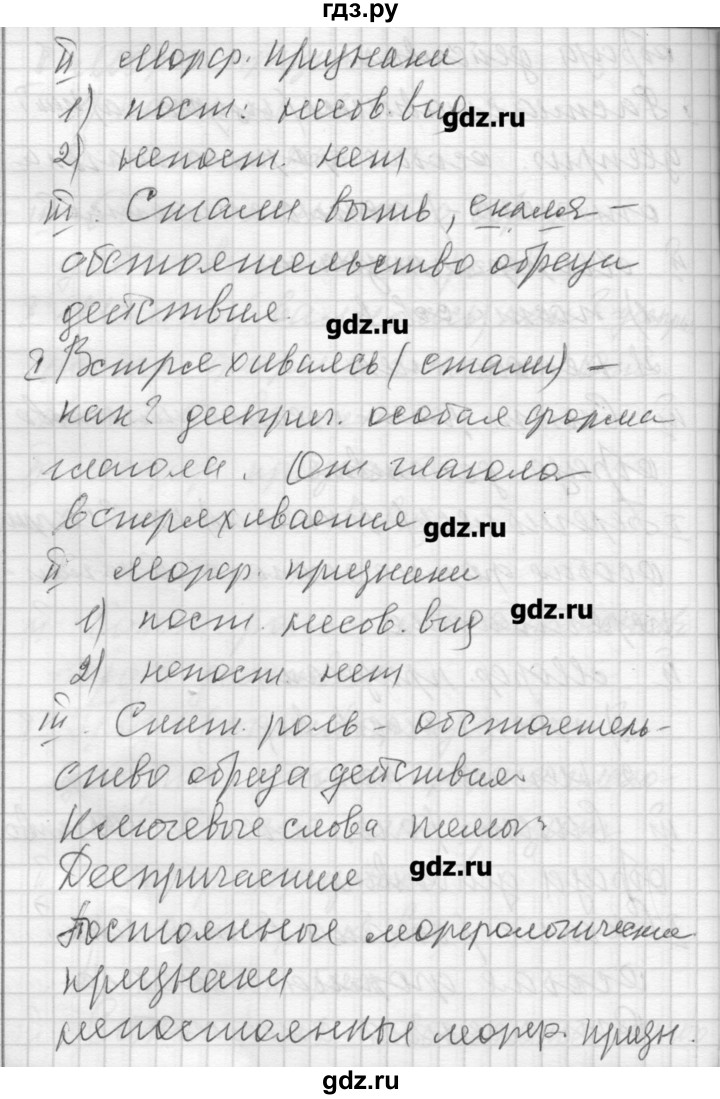 гдз.ру
II Морф. признаки
1) пост: несов. вид
gdz.ru
2) непост. нет
III. Стали выть, скаля –
обстоятельство образа
действия.
gdz.ru
I Встряхиваясь (стали) –
как? дееприч. особая форма
глагола. От глагола
встряхиваться
gdz.ru
II Морф. признаки
1) пост. несов. вид
gdz.ru
2) непост. нет
III. Синт. роль – обстоятель-
ство образа действия
Ключевые слова темы:
Деепричастие
gdz.ru
Постоянные морфологические
признаки
непостоянные морф. призн.
gdz.ru